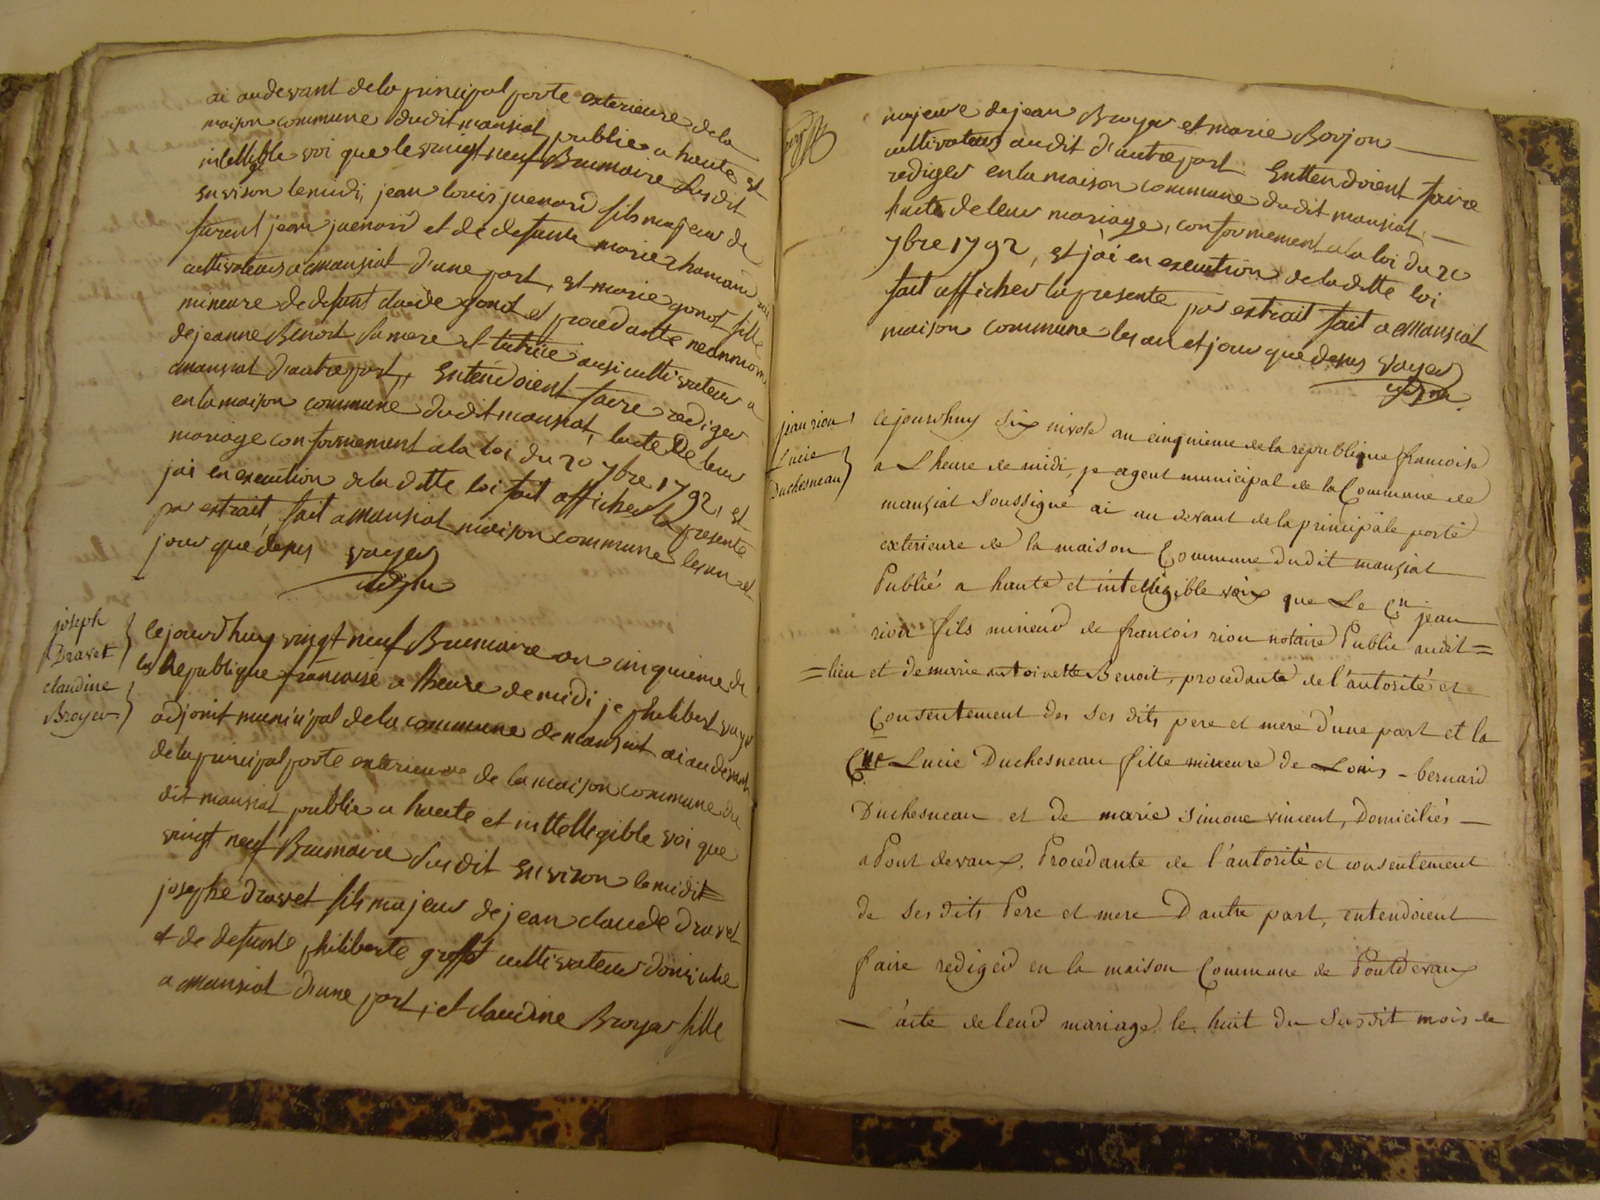 ai audevant dela principal porte exterieure dela
maison commune dudit mansiat publié a haute et
intelligible voi que le vaingt neuf Brumaire susdit
environ le midi, jean louis juenard fils majeur de
jean juenard et de defunte marie
cultivateurs a mansiat d'une part, et marie gonot fille
mineure de defunt claude gonot et procedante neanmoins
de jeanne Benoit sa mere et tutrice aussi cultivateur a
mansiat d'autre part, Entendoient faire rediger
en la maison commune dudit mansiat, lacte De leur
mariage conformement a la loi du 20 7bre 1792, et
jai en execution de la ditte loi fait afficher la presente
par extrait, fait a mansiat maison commune les an et
jour que depus voyer
adjoin
joseph
Dravet
claudine
Broyer
Cejourd'huy vingt neuf Brumaire an cinquieme de
la Republique francaise a lheure de midi je philibert voyer
adjoint municipal de la commune de mansiat ai au devant
de la principal porte exterieure de la maison commune du
dit mansiat publié a haute et inttellegible voi que
vaingt neuf Brumaire susdit Environ le midit =
josephe dravet fils majeur de jean claude dravet
et de defunte philiberte cultivateur domicilie
a mansiat d'une part, et claudine Broyer fille
majeure de jean Broyer et marie Borjon
cultivateurs audit d'autre part. Enttendoient faire
rediger en la maison commune dudit mansiat,
l'acte de leur mariage, conformement a la loi du 20
7bre 1792, et j'ai en execution de la ditte loi
fait afficher la presente par extrait fait a mansiat
maison commune les an et jour que depus voyer
adjoin
jean riou
Lucie
Duchesneau
Cejourdhuy six nivose an cinquieme de la republique francoise
a L heure de midi, je agent municipal de la Commune de
mansiat Soussigné ai au devant de la principale porte
exterieure de la maison Commune dudit mansiat
Publié a haute et intelligible voix que Le Cen jean
riou fils mineur de francois riou notaire Public audit =
= lieu et de marie antoinette Benoit, procedante de l'autorité et
Consentement des ses dits pere et mere d'une part et la
Cne Lucie Duchesneau fille mineure de Louis - bernard
Duchesneau et de marie simone vincent, Domiciliés
a Pont devaux. Procédante de l'autorité et consentement
de ses dits Pere et mere D autre part, entendoient
faire rediger en la maison Commune de Pontdevaux
L'acte de leur mariage le huit du Susdit mois de